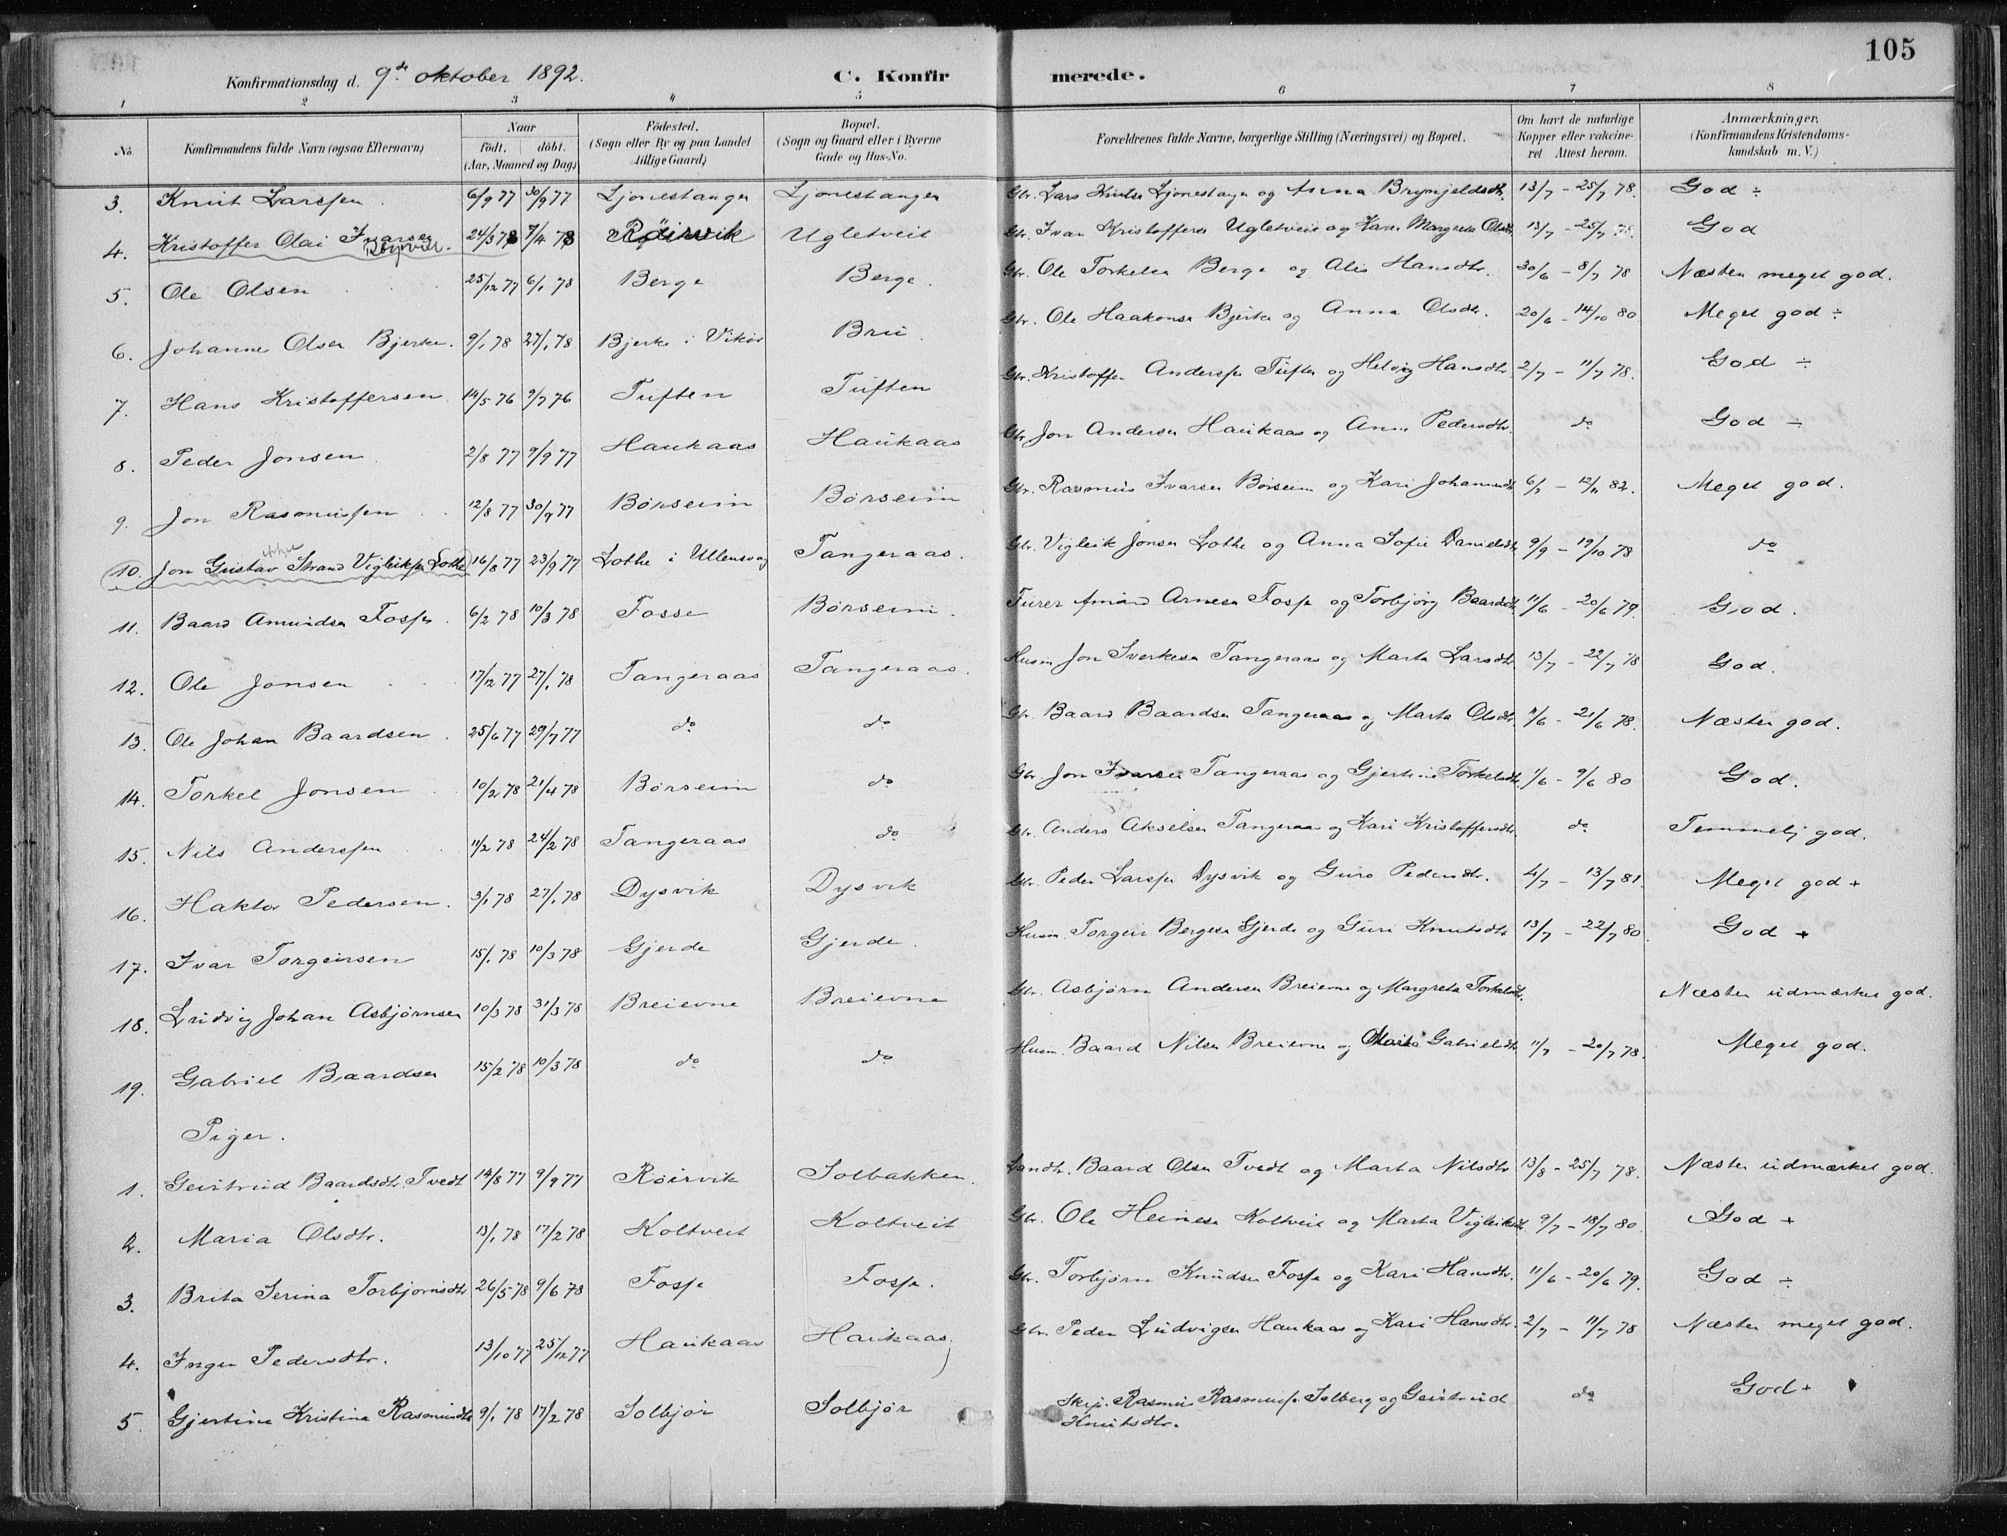 105
Konfirmationsdag d. 9de oktober 1892. C. Konfirmerede.
1 2 3 4 5 6 7 8
No. Konfirmandens fulde Navn (ogsaa Efternavn) Naar födt. döbt. (Aar, Maaned og Dag) Födested. (Sogn eller By og paa Landet tillige Gaard) Bopæl. (Sogn og Gaard eller i Byerne Gade og Hus-No. Forældrenes fulde Navne, borgerlige Stilling (Næringsvei) og Bopæl. Om havt de naturlige Kopper eller vaccineret Attest herom. Anmærkninger. (Konfirmandens Kristendomskundskab m. V.)
3. Knut Larssen 6/9 77 30/9 77 Ljonestangen Ljonestangen Gbr. Lars Knutsen Ljonestangen og Anna Brynjeldsdtr. 13/7 - 25/7 78. God ÷
4. Kristoffer Olai Ivarsen 24/3 78 7/4 78 Röirvik Ugletveit Gbr. Ivar Kristoffersen Ugletveit og Karen Margreta Olsdtr. 13/7 - 25/7 78. God
5. Ole Olsen 25/12 77 6/1 78 Berge Berge. Gbr. Ole Torkelsen Berge og Alis Hansdtr. 30/6 - 8/7 78 Næsten meget god.
6. Johannes Olsen Bjerke. 9/1 78 27/1 78 Bjerke i Vikör Bru Gbr. Ole Haakonsen Bjerke og Anna Olsdtr. 20/6 - 14/10 80 Meget god ÷
7. Hans Kristoffersen 14/5 76 9/7 76 Tuften Tuften Gbr. Kristoffer Anderssen Tuften og Helvig Hansdtr. 2/7 - 11/7 78. God ÷
8. Peder Jonsen 2/8 77 9/9 77 Haukaas Haukaas Gbr. Jon Andersen Haukaas og Anna Pedersdtr. do God ÷
9. Jon Rasmussen 12/8 77 30/9 77 Börseim Börseim Gbr. Rasmus Ivarsen Börseim og Kari Johannesdtr. 82. Meget god.
10. Jon Gustav Strand Vigleiksen Lothe 16/8 77 23/9 77 Lothe i Ullensvang Tangeraas. Gbr. Vigleik Jonsen Lothe og Anna Sofie Danielsdtr. 9/9 - 19/10 78 do
11. Baard Amundsen Fosse 6/2 78 10/3 78 Fosse Börseim. Furer Amund Arnesen Fosse og Torbjörg Baardsdtr. 11/6 - 20/6 79. God.
12. Ole Jonsen 17/12 77 27/1 78 Tangeraas Tangeraas. Husm. Jon Sverkesen Tangeraas og Marta Larsdtr. 13/7 - 22/7 78 God.
13. Ole Johan Baardsen 25/6 77 29/7 77 do do Gbr. Baard Baardsen Tangeraas og Marta Olsdtr. 11/6 - 21/6 78. Næsten god.
14. Torkel Jonsen 10/2 78 21/4 78 Börseim do Gbr. Jon Ivarsen Tangeraas og Gjertine Torkelsdtr. 1/6 - 9/6 80 God.
15. Nils Anderssen 11/2 78 24/2 78 Tangeraas do Gbr. Anders Akselsen Tangeraas og Kari Kristoffersdtr. do Temmelig god.
16. Haktor Pedersen. 3/1 78 27/1 78 Dysvik Dysvik Gbr. Peder Larssen Dysvik og Guro Pedersdtr. 4/7 - 13/7 81. Meget god +
17. Ivar Torgeirsen 15/1 78 10/3 78 Gjerde Gjerde. Husm. Torgeir Bergesen Gjerde og Guri Knutsdtr. 13/7 - 22/7 80. God +
18. Ludvig Johan Asbjørnsen 10/3 78 31/3 78 Breievne Breievne Gbr. Asbjörn Andersen Breievne og Margreta Torkelsdtr. Næsten udmærket god.
19. Gabriel Baardsen 15/2 78 10/3 78 do do Husm. Baard Nilsen Breievne og Marta Gabrielsdtr. 11/7 - 20/7 78. Meget god.
Piger.
1. Geirtrud Baardsdtr. Tvedt 14/8 77 9/9 77 Röirvik Solbakken. Landh. Baard Olsen Tvedt og Marta Nilsdtr. 13/8 - 25/7 78. Næsten udmærket god.
2. Maria Olsdtr. 13/1 78 17/2 78 Koltveit Koltveit Gbr. Ole Heinesen Koltveit og Marta Vigleiksdtr. 9/7 - 18/7 80. God +
3. Brita Serina Torbjørnsdtr 26/5 78 9/6 78 Fosse Fosse. Gbr. Torbjörn Knudsen Fosse og Kari Hansdtr. 11/6 - 20/6 79. God ÷
4. Inger Pedersdtr. 13/10 77 25/12 77 Haukaas Haukaas Gbr. Peder Ludvigsen Haukaas og Kari Hansdtr. 2/7 - 11/7 78 Næsten meget god.
5 Gjertine Kristine Rasmusdtr 9/1 78 17/2 78 Solbjör Solbjör Skrp. Rasmus Rasmussen Solberg og Geirtrud do God +
Knutsdtr.